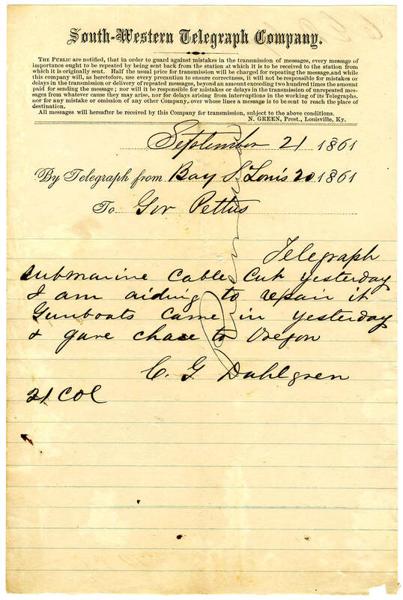 South-Western Telegraph Company.
THE PUBLIC are notified, that in order to guard against mistakes in the transmission of messages, every message of
importance ought to be repeated by being sent back from the station at which it is to be received to the station from
which it is originally sent. Half the usual price for transmission will be charged for repeating the message, and while
this company will, as heretofore, use every precaution to ensure correctness, it will not be responsible for mistakes or
delays in the transmission or delivery of repeated messages, beyond an amount exceeding two hundred times the amount
paid for sending the message; nor will it be responsible for mistakes or delays in the transmission of unrepeated mess-
ages from whatever cause they may arise, nor for delays arising from interruptions in the working of its Telegraphs,
nor for any mistake or omission of any other Company, over whose lines a message is to be sent to reach the place of
destination.
All messages will hereafter be received by this Company for transmission, subject to the above conditions.
N. GREEN, Prest., Louisville, Ky.
September 21 1861
By Telegraph from Bay St Louis 20 1861
To Gov Pettus
Telegraph
submarine cable cut yesterday
I am aiding to repair it
Gunboats came in yesterday
& gave chase to Oregon
C. G Dahlgren
21 Col